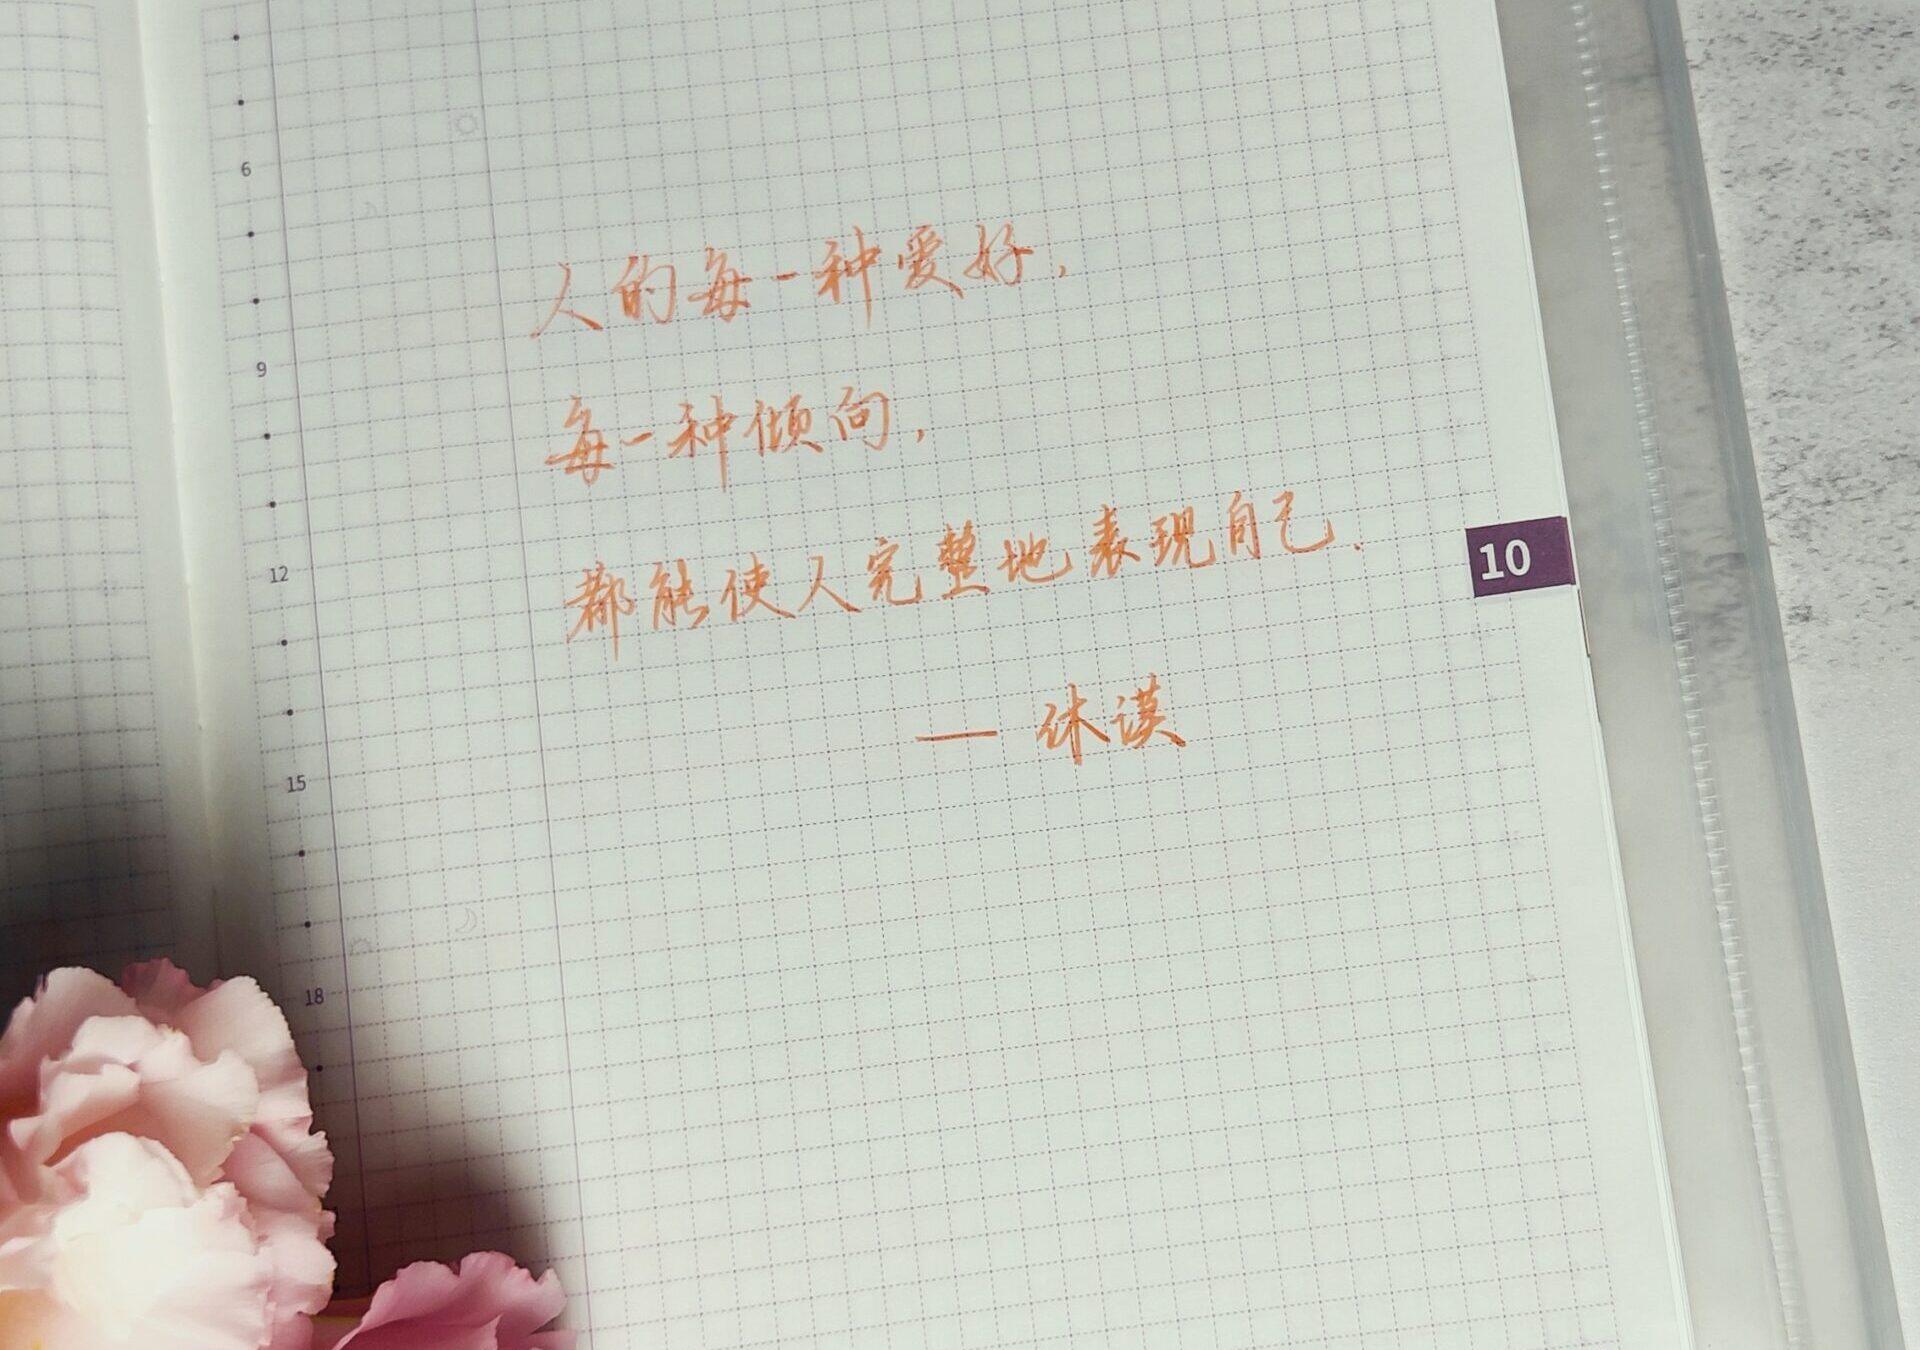 6
人的每一种爱好，
9
每一种倾向，
都能使人完整地表现自己.
10
12
— 休谟
15
18